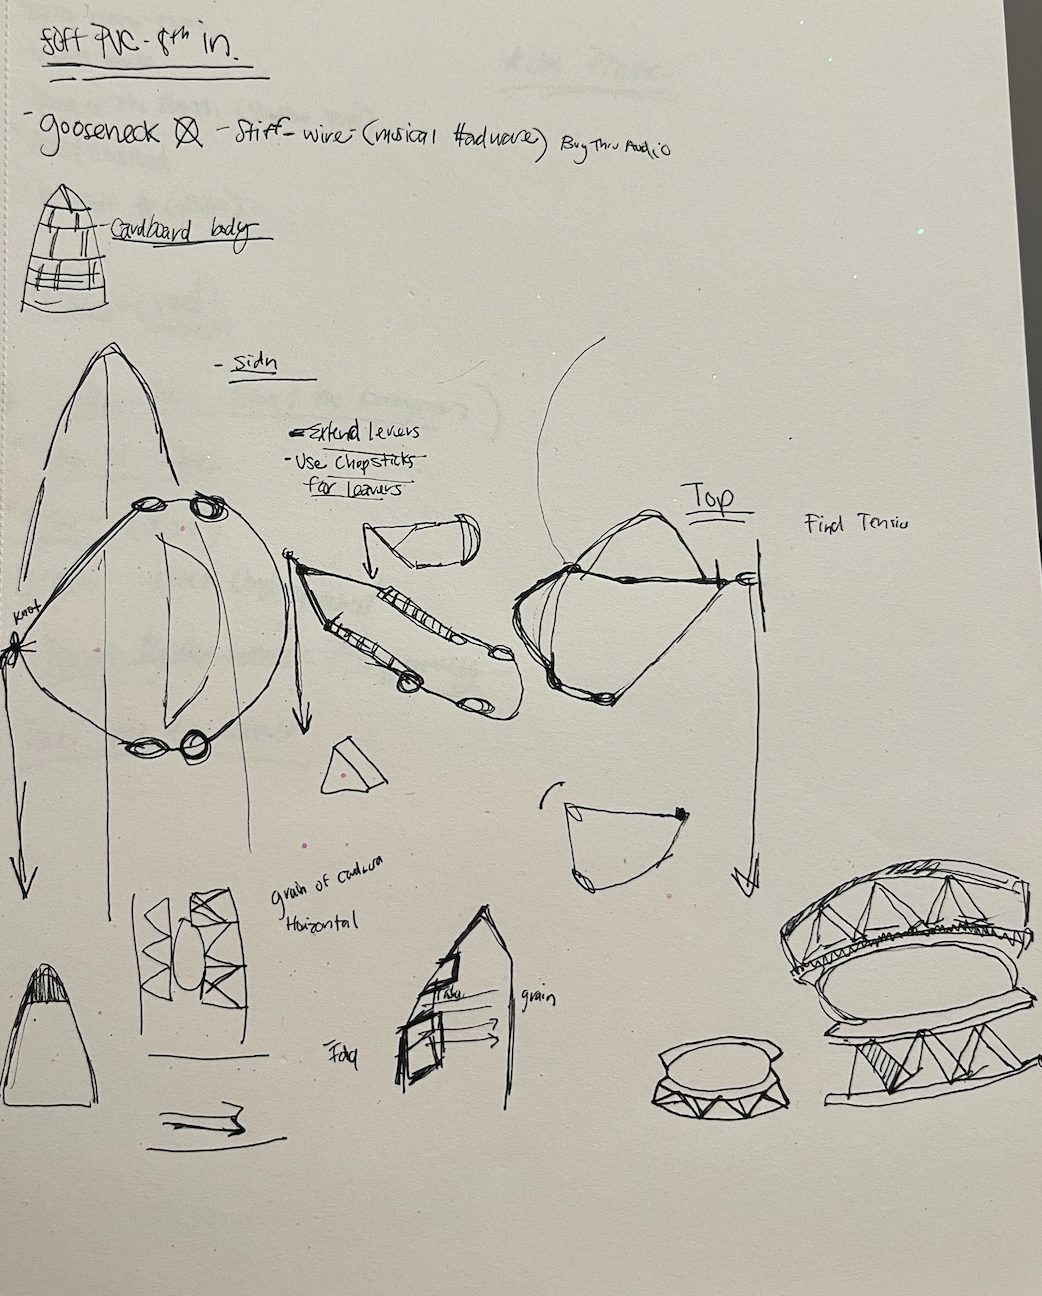 soft PVC - 8th in.
- gooseneck - Stiff-wire- (musical Hadware) Buy Thru Audio
- Cardboard body
- Sidn
- Extend levers
- Use Chopsticks
for leavers
Top
Find Tensio
knot
grain of
Horizontal
grain